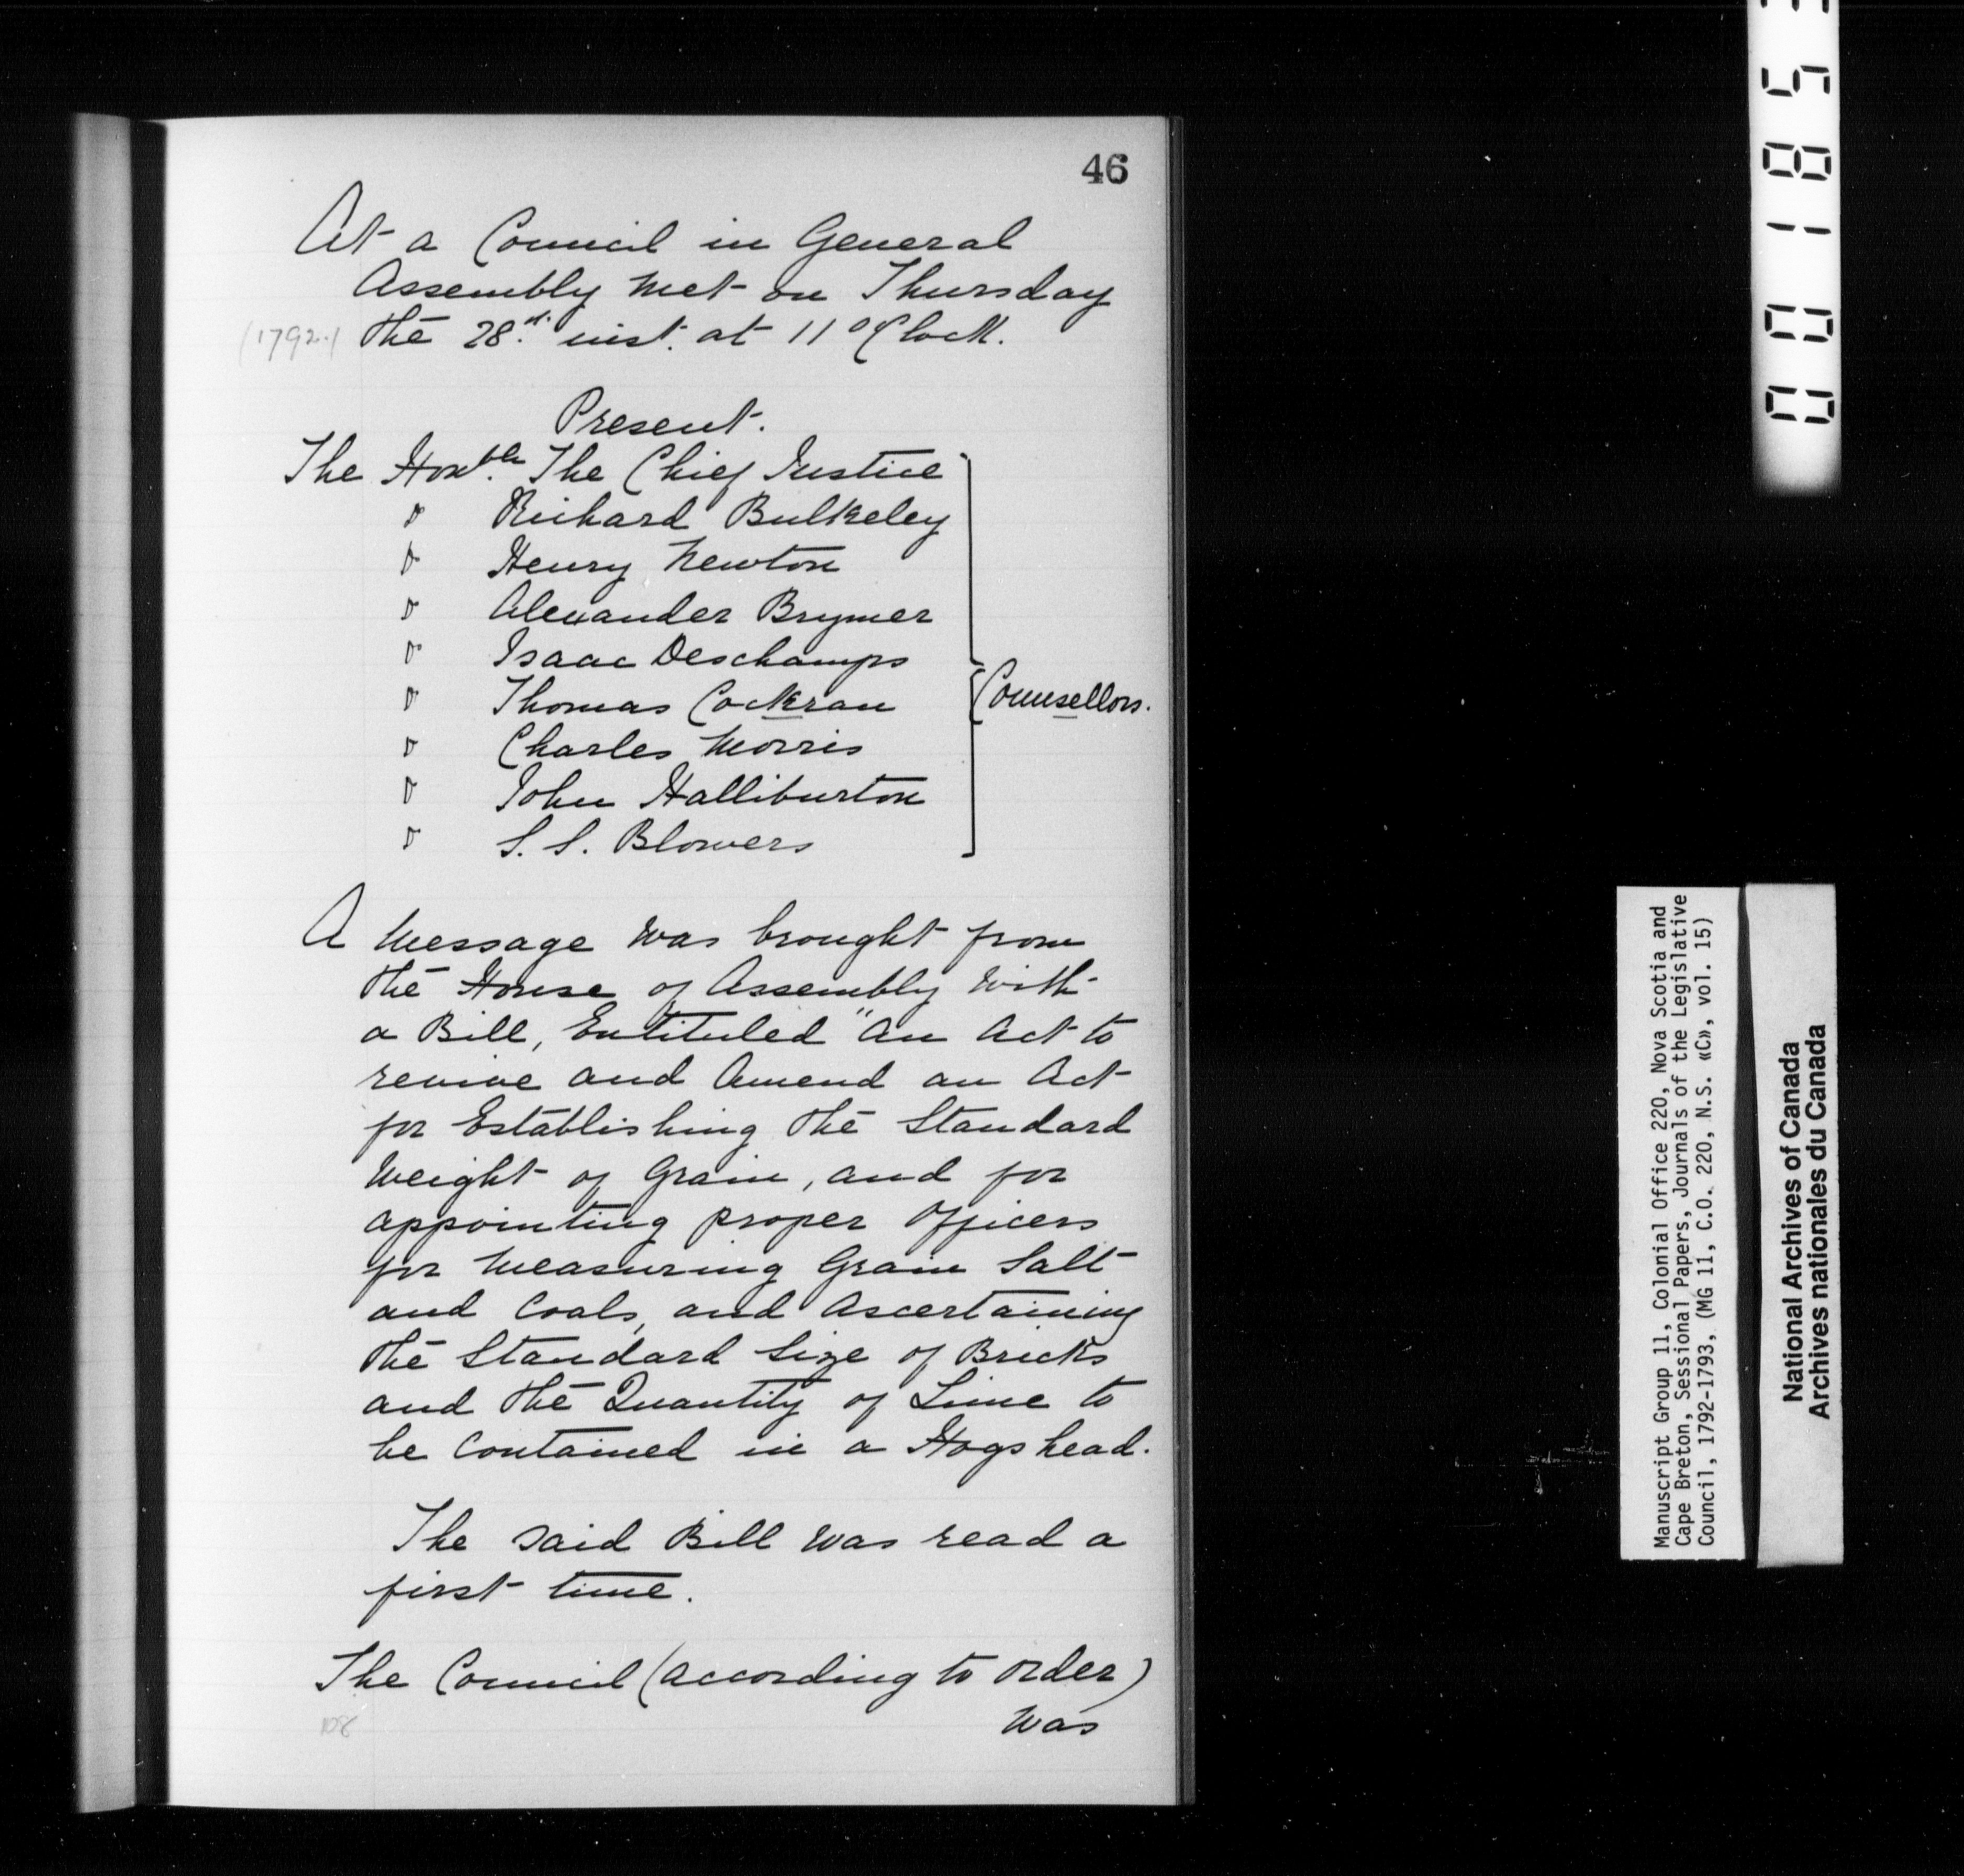 46
At a Council in General
Assembly met on Thursday
(1792.) the 28.th inst. at 11 O'Clock.
Present.
The Honble. The Chief Justice
" Richard Bulkeley
" Henry Newton
" Alexander Brymer
" Isaac Deschamps
" Thomas Cockran
Counsellors.
" Charles Morris
" John Halliburton
" S. S. Blowers
A Message was brought from
the House of Assembly with
a Bill, Entituled "An Act to
revive and Amend an Act
for Establishing the Standard
Weight of Grain, and for
appointing proper Officers
for Measuring Grain Salt
and Coals, and Ascertaining
the Standard Size of Bricks
and the Quantity of Lime to
be Contained in a Hogshead.
The said Bill was read a
first time.
The Council (according to order)
was
108
00185
Manuscript Group 11, Colonial Office 220, Nova Scotia and
Cape Breton, Sessional Papers, Journals of the Legislative
Council, 1792-1793, (MG 11, C.O. 220, N.S. «C», vol. 15)
National Archives of Canada
Archives nationales du Canada